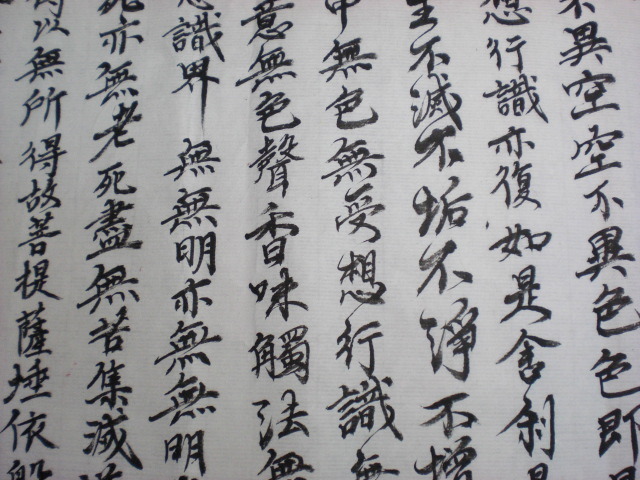 不異空空不異色色即是
想行識亦復如是舍利
生不滅不垢不淨不增
中無色無受想行識無
意無色聲香味觸法無
意識界無無明亦無無明
死亦無老死盡無苦集滅道
以無所得故菩提薩埵依般